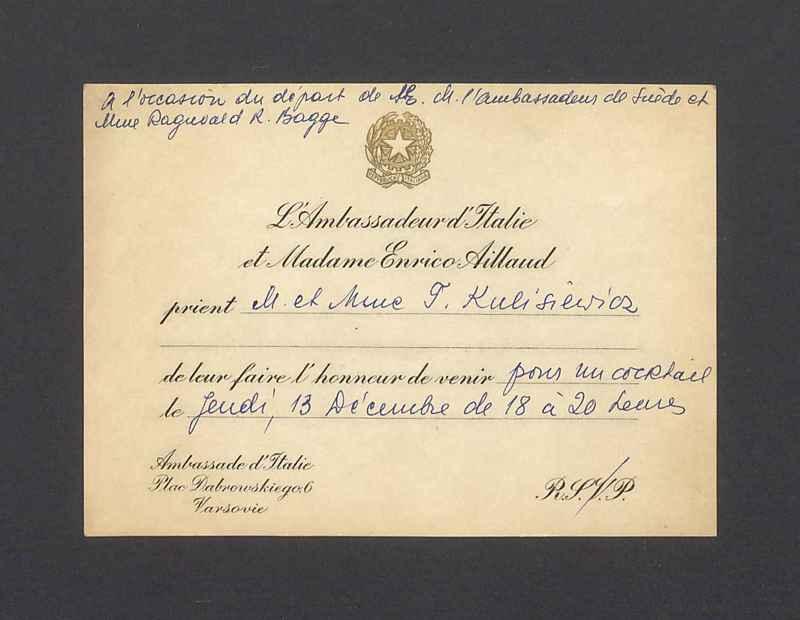 A l'occasion du départ de M. l'Ambassadeur de Suède et
Mme Ragnvald R. Bagge
L'Ambassadeur d'Italie
et Madame Enrico Aillaud
prient M. et Mme T. Kulisiewicz
de leur faire l'honneur de venir pour un cocktail
le Jeudi, 13 Décembre de 18 à 20 heures
Ambassade d'Italie
Plac Dąbrowskiego, 6
Varsovie
R.S.V.P.